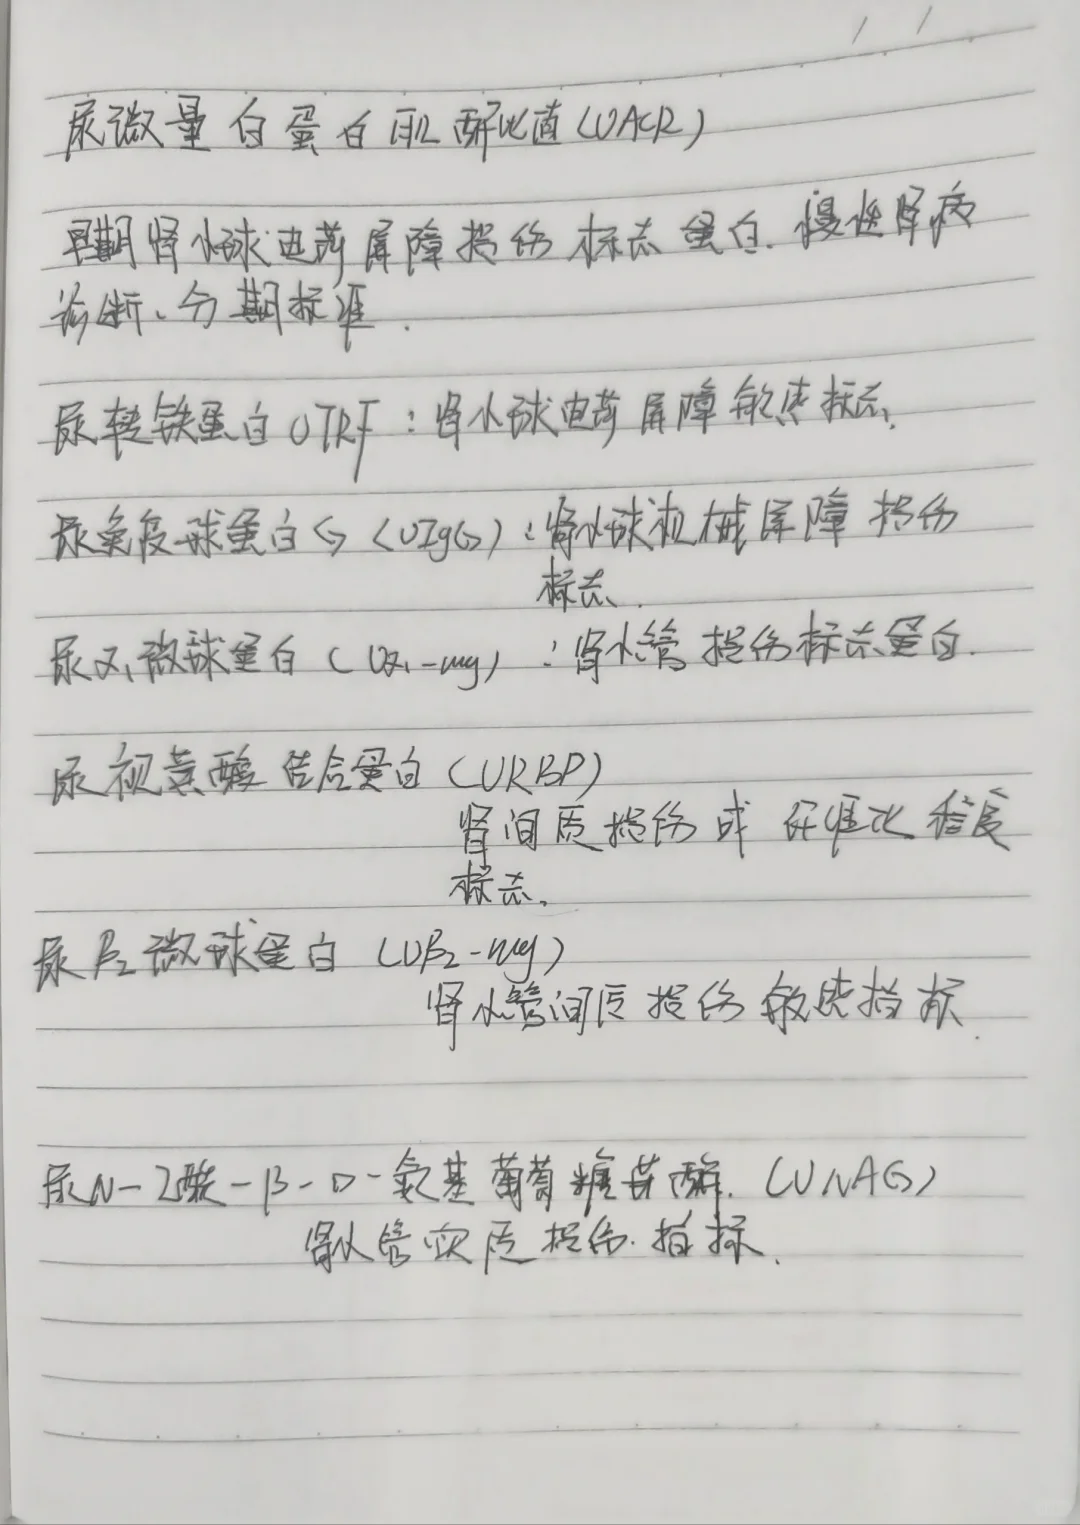 尿微量白蛋白肌酐比值(UACR)
早期肾小球电荷屏障损伤标志蛋白.慢性肾病
诊断、分期标准.
尿转铁蛋白UTRF:肾小球电荷屏障敏感标志.
尿免疫球蛋白G(UIgG):肾小球机械屏障损伤
标志.
尿α₁微球蛋白(Uα₁-mg):肾小管损伤标志蛋白.
尿视黄醇结合蛋白(URBP)
肾间质损伤或纤维化程度
标志.
尿β₂微球蛋白(Uβ₂-mg)
肾小管间质损伤敏感指标.
尿N-乙酰-β-D-氨基葡萄糖苷酶.(UNAG)
肾小管实质损伤.指标.